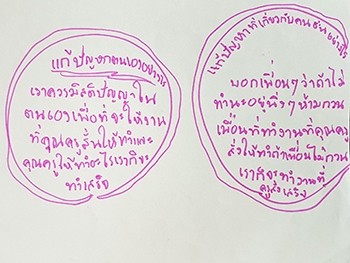 แก้ปัญหาตนเองอย่างไร
เราควรมีสติปัญญาใน
ตนเองเพื่อที่จะให้งาน
ที่คุณครูสั่งให้ทำเพาะ
คุณครูให้ทำอะไรเราก็จะ
ทำเสร็จ
แก้ปัญหาที่เกี่ยวกับคนอื่นอย่างไร
บอกเพื่อนๆว่าถ้าไม่
ทำนะอยู่นิ่งๆห้ามกวน
เพื่อนที่ทำงานที่คุณครู
สั่งให้ทำถ้าเพื่อนไม่กวน
เราก็จะทำงานที่
ครูสั่งเสร็จ